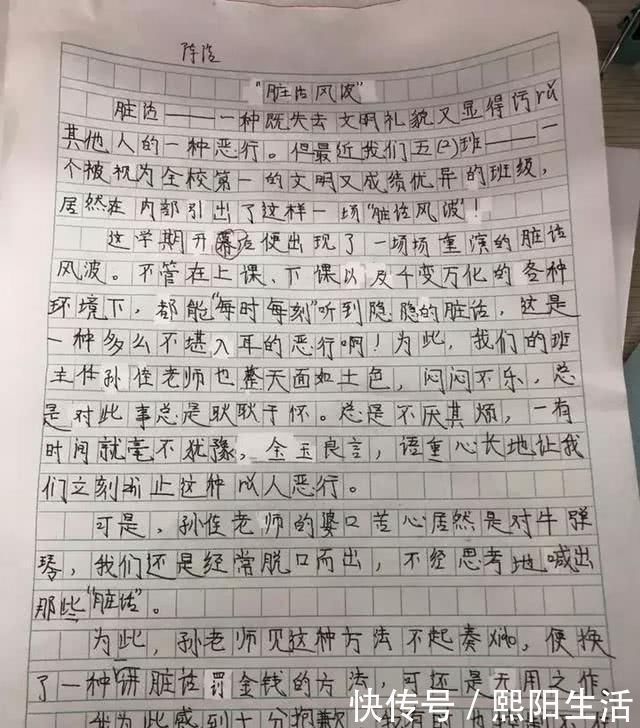 陈浩
"脏话风波"
脏话——一种既失去文明礼貌又显得污以
其他人的一种恶行。但最近我们五(2)班——一
个被视为全校第一的文明又成绩优异的班级,
居然在内部引出了这样一场"脏话风波"!
这学期开幕后便出现了一场场重演的脏话
风波。不管在上课、下课以及千变万化的各种
环境下,都能"每时每刻"听到隐隐的脏话,这是
一种多么不堪入耳的恶行啊!为此,我们的班
主任孙俊老师也整天面如土色,闷闷不乐,总
是对此事总是耿耿于怀。总是不厌其烦,一有
时间就毫不犹豫,金玉良言,语重心长地让我
们立刻渐止这种以人恶行。
可是,孙俊老师的婆口苦心居然是对牛弹
琴,我们还是经常脱口而出,不经思考地喊出
那些"脏话"。
为此,孙老师见这种方法不起奏效,便换
了一种讲脏话罚金钱的方法,可还是无用之作
我为此感到十分抱歉
快传号/熙阳生活